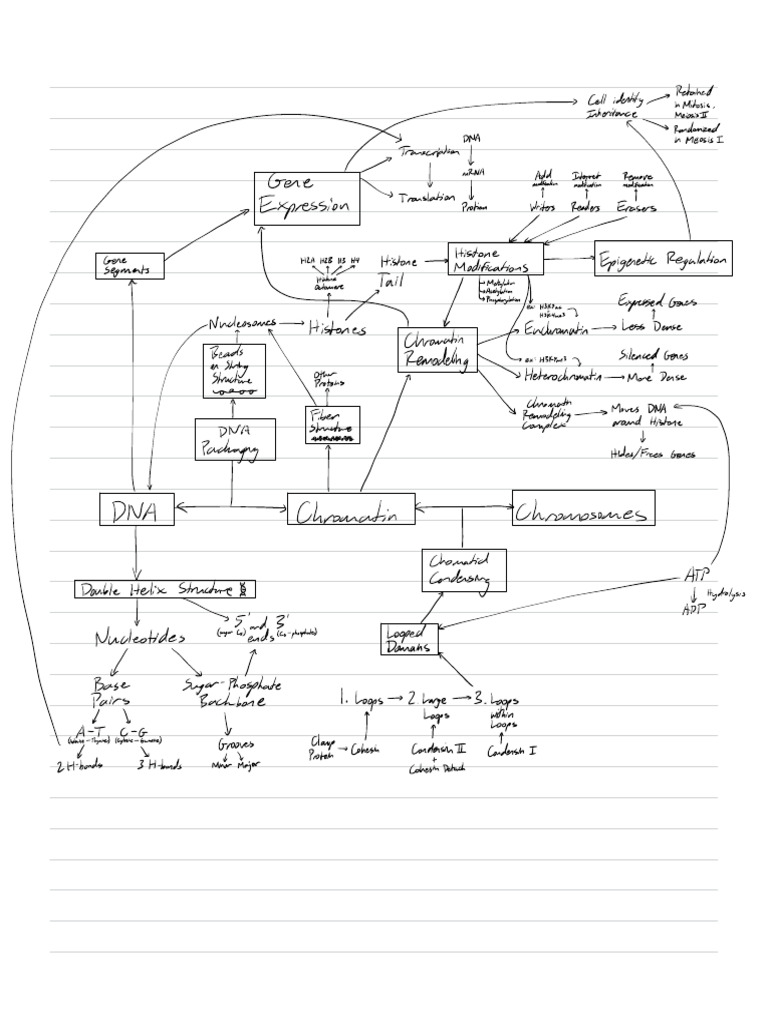 Cell identity
Inheritance
Retained
in Mitosis,
Meiosis II
Randomized
in Meiosis I
Transcription
Translation
DNA
mRNA
Protein
Gene
Expression
Add
modification
Interpret
modification
Remove
modification
Writers
Readers
Erasers
Gene
Segments
H2A H2B H3 H4
Histone
Octamere
Histone
Tail
Histone
Modifications
Methylation
Acetylation
Phosphorylation
Epigenetic Regulation
Nucleosomes
Histones
Chromatin
Remodeling
Euchromatin
Less Dense
Expressed Genes
ex: H3K9me3
Heterochromatin
More Dense
Silenced Genes
Beads
on String
Structure
Other
Proteins
Fiber
Structure
DNA
Packaging
Chromatin
Remodeling
Complex
Moves DNA
around Histone
Hides/Frees Genes
DNA
Chromatin
Chromosomes
Chomatid
Condensing
ATP
Hydrolysis
ADP
Double Helix Structure
Nucleotides
5' and 3'
ends
Looped
Domains
Base
Pairs
Sugar-Phosphate
Backbone
1. Loops
2. Large
Loops
3. Loops
within
Loops
A-T
C-G
2 H-bonds
3 H-bonds
Grooves
Minor
Major
Clamp
Protein
Cohesin
Condensin II
+
Cohesin Detach
Condensin I